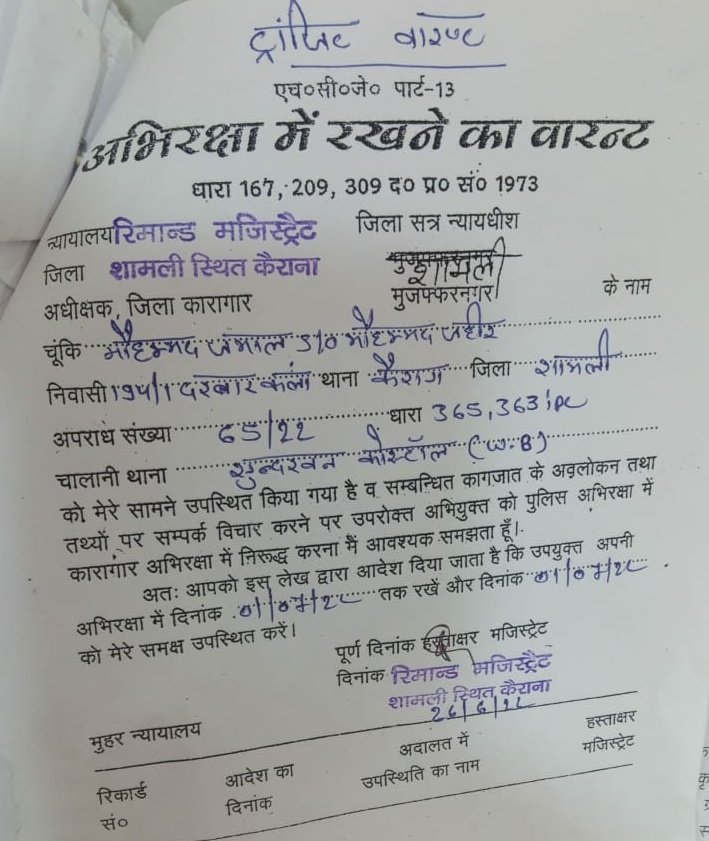 ट्रांजिट वारण्ट
एच०सी०जे० पार्ट-13
अभिरक्षा में रखने का वारन्ट
धारा 167, 209, 309 द० प्र० सं० 1973
न्यायालय रिमान्ड मजिस्ट्रैट जिला सत्र न्यायधीश
जिला शामली स्थित कैराना शामली
अधीक्षक, जिला कारागार मुजफ्फरनगर के नाम
चूंकि मौहम्मद जमाल S/o मौहम्मद जहीर
निवासी 194/1 दरबार कलां थाना कैराना जिला शामली
अपराध संख्या 65/22 धारा 365, 363 ipc
चालानी थाना सुन्दरवन कोस्टॉल (W.B)
को मेरे सामने उपस्थित किया गया है व सम्बन्धित कागजात के अवलोकन तथा
तथ्यों पर सम्पर्क विचार करने पर उपरोक्त अभियुक्त को पुलिस अभिरक्षा में
कारागार अभिरक्षा में निरूद्ध करना मैं आवश्यक समझता हूँ।
अतः आपको इस लेख द्वारा आदेश दिया जाता है कि उपयुक्त अपनी
अभिरक्षा में दिनांक 01/07/22 तक रखें और दिनांक 01/07/22
को मेरे समक्ष उपस्थित करें।
पूर्ण दिनांक हस्ताक्षर मजिस्ट्रेट
दिनांक रिमान्ड मजिस्ट्रैट
शामली स्थित कैराना
मुहर न्यायालय 26/6/22
रिकार्ड सं० आदेश का दिनांक अदालत में उपस्थिति का नाम हस्ताक्षर मजिस्ट्रेट